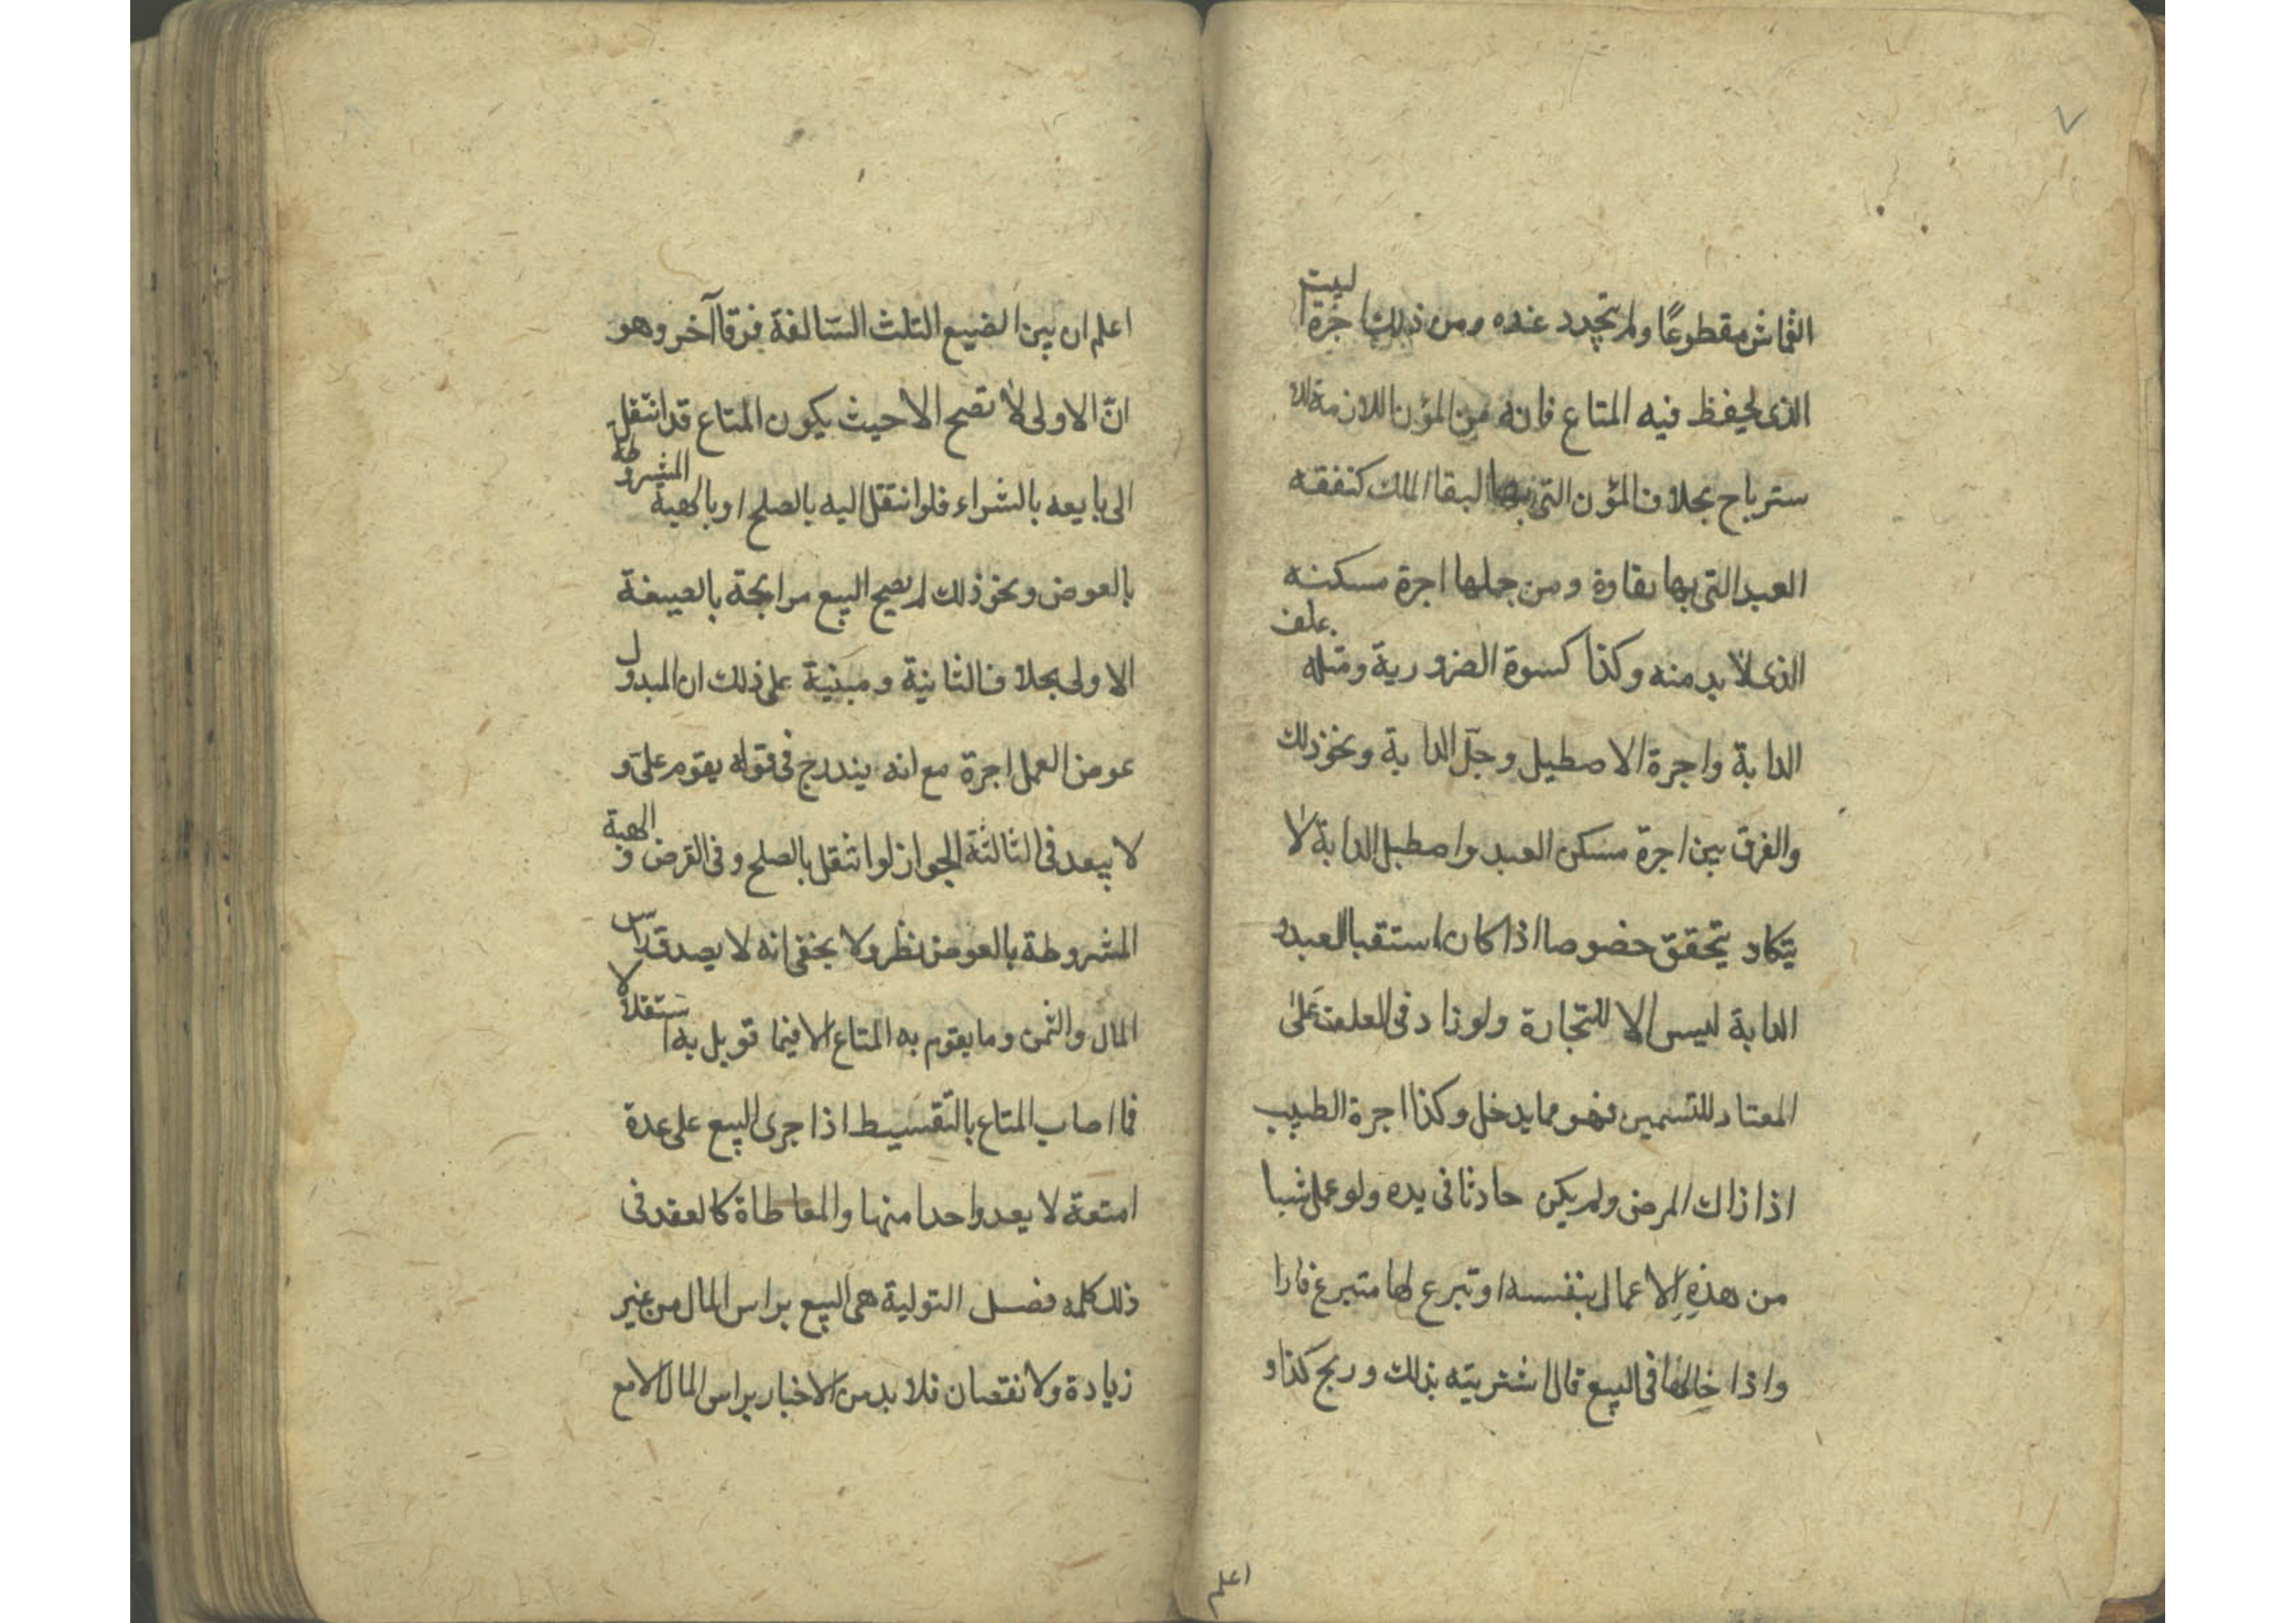 ٧
القماش مقطوعًا ولم تجدد عنده ومن ذلك اجرة البيت
الذى يحفظ فيه المتاع فانه من المؤن اللازمة للا
سترباح بخلاف المؤن التى بها البقا الملك كنفقه
العبد التى بها بقاوة ومن جملها اجرة مسكنه
الذى لا بد منه وكذا كسوة الضرورية ومثله علف
الدابة واجرة الاصطيل وجلّ الدابة ونحو ذلك
والفرق بين اجرة مسكن العبد واصطبل الدابة لا
يتكاد يتحقق خصوصا اذا كان استقبا العبد و
الدابة ليس الا للتجارة ولو زاد فى العلف على
المعتاد للتسمين فهو مما يدخل وكذا اجرة الطبيب
اذا زاك المرض ولم يكن حادثا فى يده ولو عمل شيا
من هذه الاعمال بنفسه او تبرع لها متبرع فارا
واذا خالها فى البيع قال اشتريته بذلك وربح كذا و
اعلم
اعلم ان بين الضيع الثلث السّالفة فرقا آخر وهو
انّ الاولى لا تصح الا حيث يكون المتاع قد انتقل
الى بايعه بالشراء فلو انتقل اليه بالصلح او بالهبة المشروطة
بالعوض ونحو ذلك لم يصح البيع مرابحة بالصيغة
الاولى بخلاف الثانية ومبنية على ذلك ان المبدول
عوض العمل اجرة مع انه يندرج فى قوله يقوم علىّ و
لا يبعد فى الثالثة الجواز لو انتقل بالصلح وفى القرض و الهبة
المشروطة بالعوض نظر ولا يخفى انه لا يصدق راس
المال والثمن وما يقوم به المتاع الا فيما قوبل به استقلالا
فما اصاب المتاع بالتّقسيط اذا جرى البيع على عدة
امتعة لا يعد واحدا منها والمعاطاة كالعقد فى
ذلك كلمه فصل التولية هى البيع براس المال من غير
زيادة ولا نقصان فلا بد من الاخبار براس المال الا مع